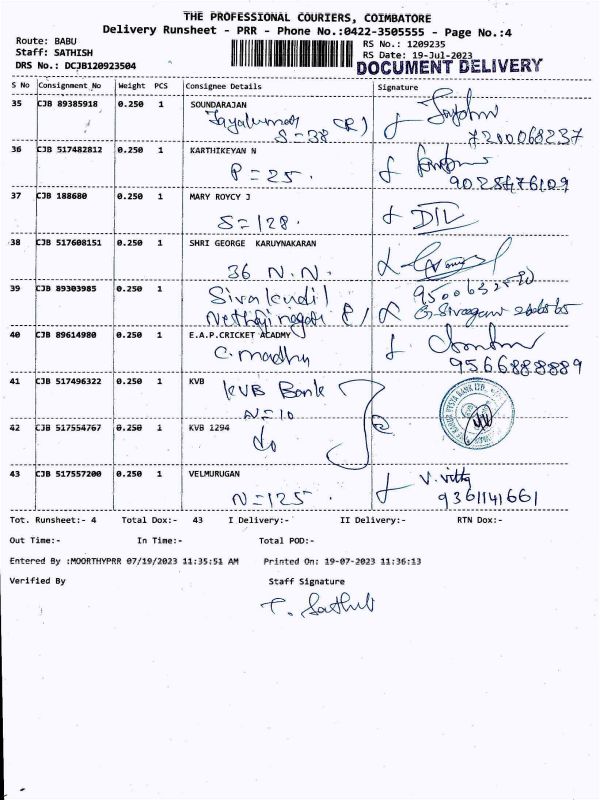 THE PROFESSIONAL COURIERS, COIMBATORE
Delivery Runsheet - PRR - Phone No.:0422-3505555 - Page No.:4
Route: BABU
RS No.: 1209235
Staff: SATHISH
RS Date: 19-Jul-2023
DRS No.: DCJB120923504
DOCUMENT DELIVERY
S No Consignment_No Weight PCS Consignee Details Signature
35 CJB 89385918 0.250 1 SOUNDARAJAN
Jayakumar (R)
S=38
7200068237
36 CJB 517482812 0.250 1 KARTHIKEYAN N
P=25.
9028476109
37 CJB 188680 0.250 1 MARY ROYCY J
S=128.
DIL
38 CJB 517608151 0.250 1 SHRI GEORGE KARUYNAKARAN
36 N.N.
39 CJB 89303985 0.250 1 Sivakudil
Nethaji nagar
40 CJB 89614980 0.250 1 E.A.P.CRICKET ACADMY
C. madhu
9566888889
41 CJB 517496322 0.250 1 KVB
KVB Bank
N=10
42 CJB 517554767 0.250 1 KVB 1294
do
43 CJB 517557200 0.250 1 VELMURUGAN
N=125.
9361141661
Tot. Runsheet:- 4 Total Dox:- 43 I Delivery:- II Delivery:- RTN Dox:-
Out Time:- In Time:- Total POD:-
Entered By :MOORTHYPRR 07/19/2023 11:35:51 AM Printed On: 19-07-2023 11:36:13
Verified By Staff Signature